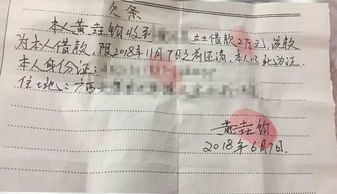 欠条
本人黄幸钧收到 立士借款2万元,该款
为本人借款,限2018年11月7日之前还清,本人以此为证.
本人身份证:
住址地:广西
黄幸钧
2018年6月7日.